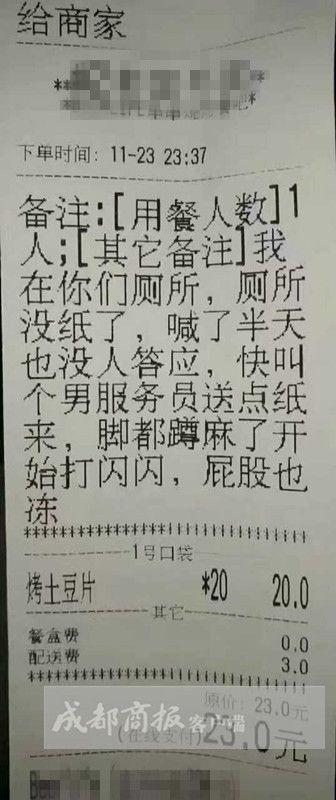 给商家
下单时间: 11-23 23:37
备注:[用餐人数]1
人;[其它备注]我
在你们厕所，厕所
没纸了，喊了半天
也没人答应，快叫
个男服务员送点纸
来，脚都蹲麻了开
始打闪闪，屁股也
冻
1号口袋
烤土豆片 *20 20.0
其它
餐盒费 0.0
配送费 3.0
原价: 23.0元
成都商报客户端
(在线支付)23.0元